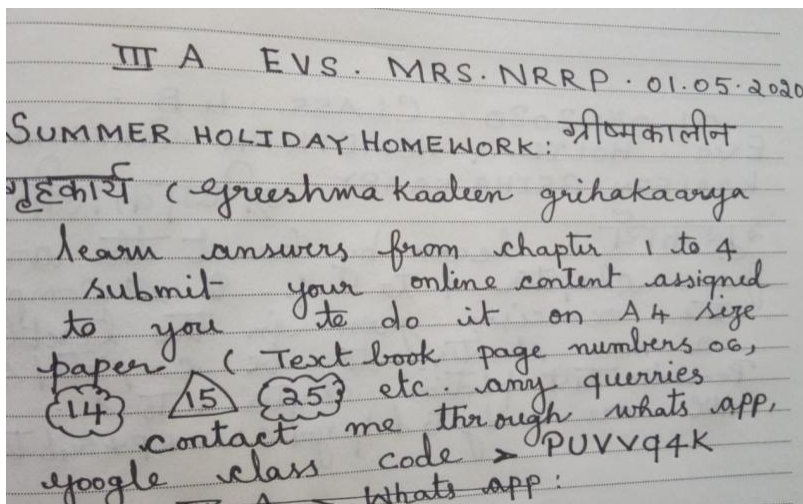 III A EVS. MRS. NRRP. 01.05.2020
SUMMER HOLIDAY HOMEWORK: ग्रीष्मकालीन
गृहकार्य (Greeshma Kaaleen grihakaarya
learn answers from chapter 1 to 4
submit your online content assigned
to you to do it on A4 size
paper (Text book page numbers 06,
14 15 25 etc. any querries
contact me through whats app,
google class code > PUVVq4K
Whats app: